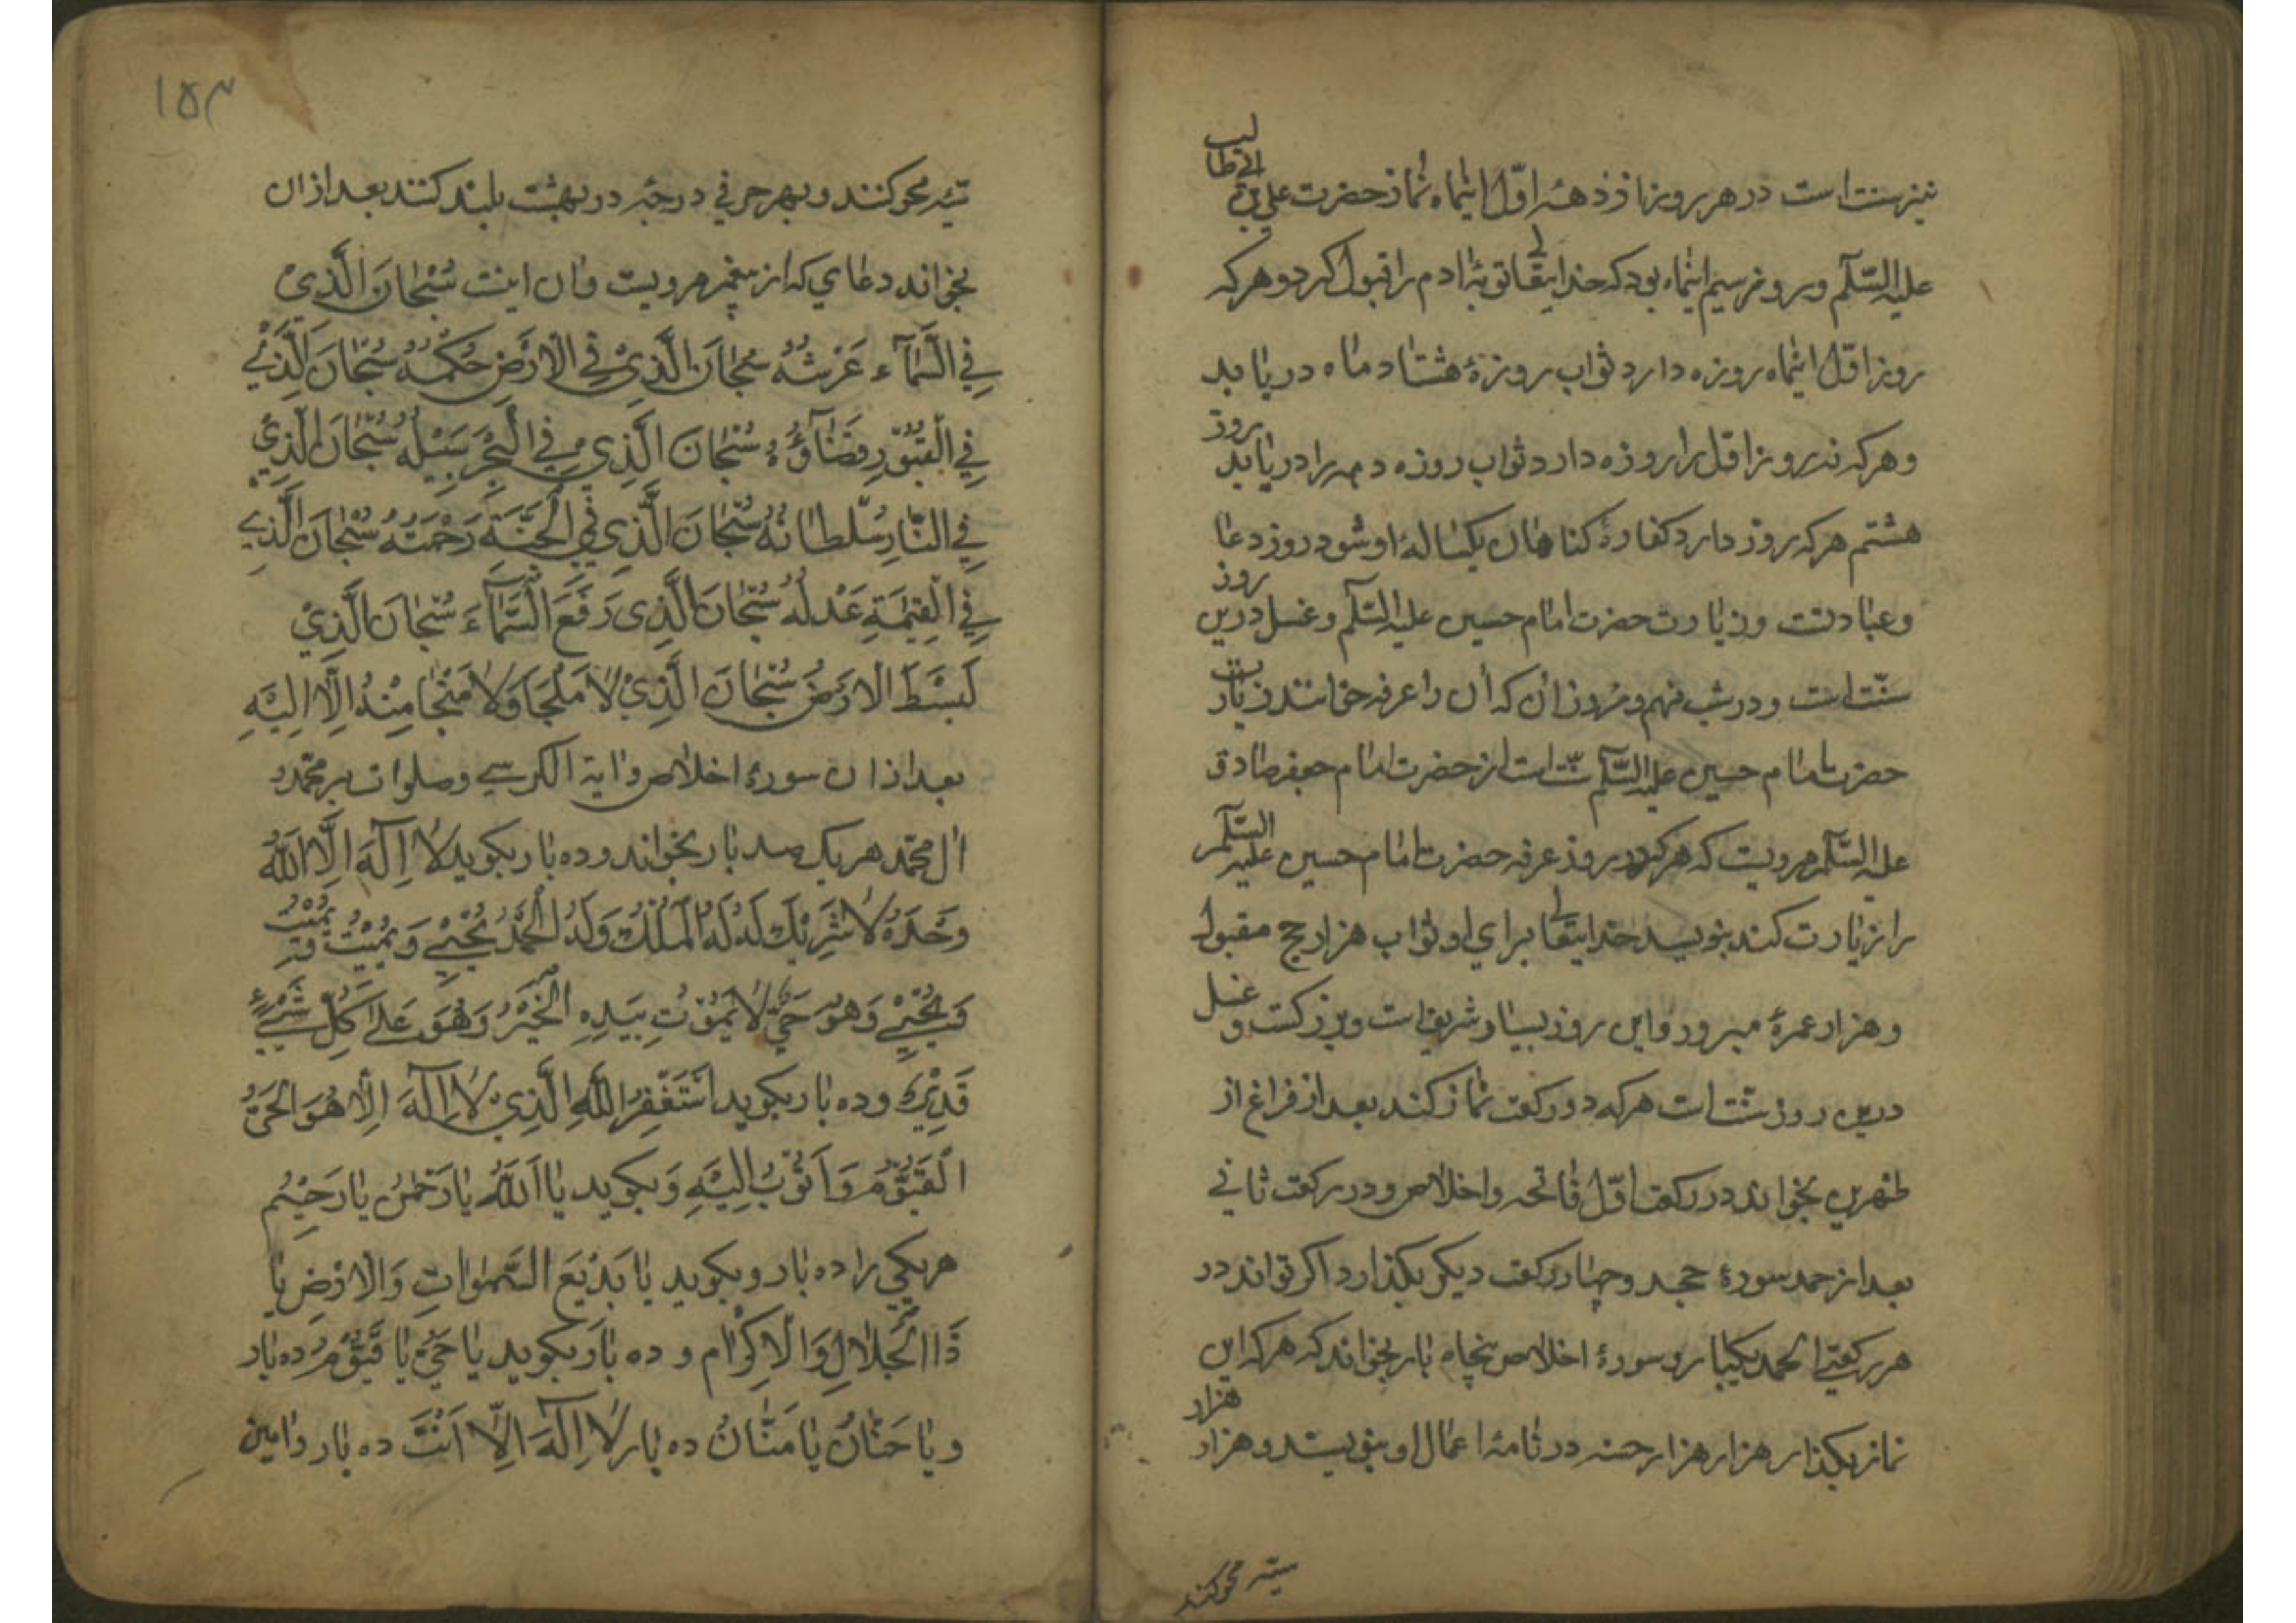 نیز سنت است در هر روز از دههٔ اوّل اینماه نماز حضرت علی بن ابی طالب
علیه السّلام و روز سیم اینماه بود که خدایتعالی توبهٔ ادم را قبول کرد و هر که
روز اوّل اینماه روزه دارد ثواب روزهٔ هشتاد ماه دریابد
و هر که نه روز اوّل را روزه دارد ثواب روزه دهر را دریابد روز
هشتم هر که روزه دارد کفارهٔ کناهان یکسالهٔ او شود روز دعا
و عبادتست و زیارت حضرت امام حسین علیه السّلم و غسل درین روز
سنّت است و در شب نهم و روز آن که آن را عرفه خوانند زیارت
حضرت امام حسین علیه السّلم سنّت است از حضرت امام جعفر صادق
علیه السّلم مرویست که هر که در روز عرفه حضرت امام حسین علیه السّلم
را زیارت کند بنویسد خدایتعالی برای او ثواب هزار حج مقبول
و هزار عمرهٔ مبرور و این روز بسیار شریف است و بزرکست و غسل
درین روز سنّت است هر که دو رکعت نماز کند بعد از فراغ از
ظهرین بخواند در رکعت اوّل فاتحه و اخلاص و در رکعت ثانی
بعد از حمد سورهٔ جحد و چهار رکعت دیکر بکذارد اکر تواند در
هر رکعتی الحمد یکبار و سورهٔ اخلاص پنجاه بار بخواند که هر که این
نماز بکذارد هزار هزار حسنه در نامهٔ اعمال او بنویسند و هزار هزار
سیّه محو کنند
۱۵۳
سیّه محو کنند و بهر حرفی درجه در بهشت بلند کنند بعد از ان
بخواند دعای که از پیغمبر مرویست و ان اینست سُبْحَانَ الَّذِیْ
فِی السَّمَآءِ عَرْشُهُ سُبْحَانَ الَّذِیْ فِی الْاَرْضِ حُکْمُهُ سُبْحَانَ الَّذِیْ
فِی الْقُبُوْرِ قَضَآؤُهُ سُبْحَانَ الَّذِیْ فِی الْبَحْرِ سَبِیْلُهُ سُبْحَانَ الَّذِیْ
فِی النَّارِ سُلْطَانُهُ سُبْحَانَ الَّذِی فِی الْجَنَّةِ رَحْمَتُهُ سُبْحَانَ الَّذِی
فِی الْقِیٰمَةِ عَدْلُهُ سُبْحَانَ الَّذِی رَفَعَ السَّمَآءَ سُبْحَانَ الَّذِیْ
بَسَطَ الْاَرْضَ سُبْحَانَ الَّذِیْ لَا مَلْجَا وَلَا مَنْجَا مِنْهُ اِلَّا اِلَیْهِ
بعد از ان سورهٔ اخلاص و ایة الکرسی و صلوات بر محمّد و
ال محمّد هر یک صد بار بخواند و ده بار بکوید لَا اِلَهَ اِلَّا اللهُ
وَحْدَهُ لَا شَرِیْکَ لَهُ لَهُ الْمُلْکُ وَلَهُ الْحَمْدُ یُحْیِیْ وَ یُمِیْتُ وَ یُمِیْتُ
وَیُحْیِیْ وَهُوَ حَیٌّ لَا یَمُوْتُ بِیَدِهِ الْخَیْرُ وَهُوَ عَلَی کُلِّ شَیْءٍ
قَدِیْرٌ و ده بار بکوید اَسْتَغْفِرُ اللهَ الَّذِیْ لَا اِلَهَ اِلَّا هُوَ الْحَیُّ
الْقَیُّوْمُ وَ اَتُوْبُ اِلَیْهِ وَ بکوید یَا اَللهُ یَا رَحْمٰنُ یَا رَحِیْمُ
هر یکی را ده بار و بکوید یَا بَدِیْعَ السَّمٰوَاتِ وَالْاَرْضِ یَا
ذَا الْجَلَالِ وَالْاِکْرَام و ده بار بکوید یَا حَیُّ یَا قَیُّوْمُ ده بار
و یَا حَنَّانُ یَا مَنَّانُ ده بار لَا اِلَهَ اِلَّا اَنْتَ ده بار و امین